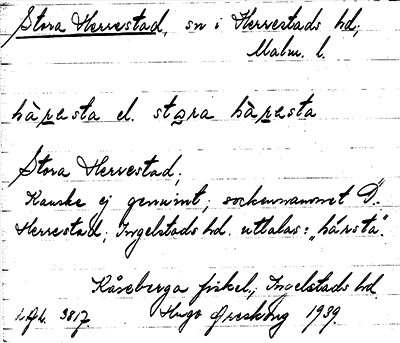 Stora Herrestad, sn i Herrestads hd,
Malm. l.
häresta el. stora häresta
Stora Herrestad;
Kanske ej genuint, sockennamnet Ö.
Herrestad, Ingelstads hd. uttalas: "härsta".
Kåseberga fiskel., Ingelstads hd.
3817. Hugo Areskog 1939.